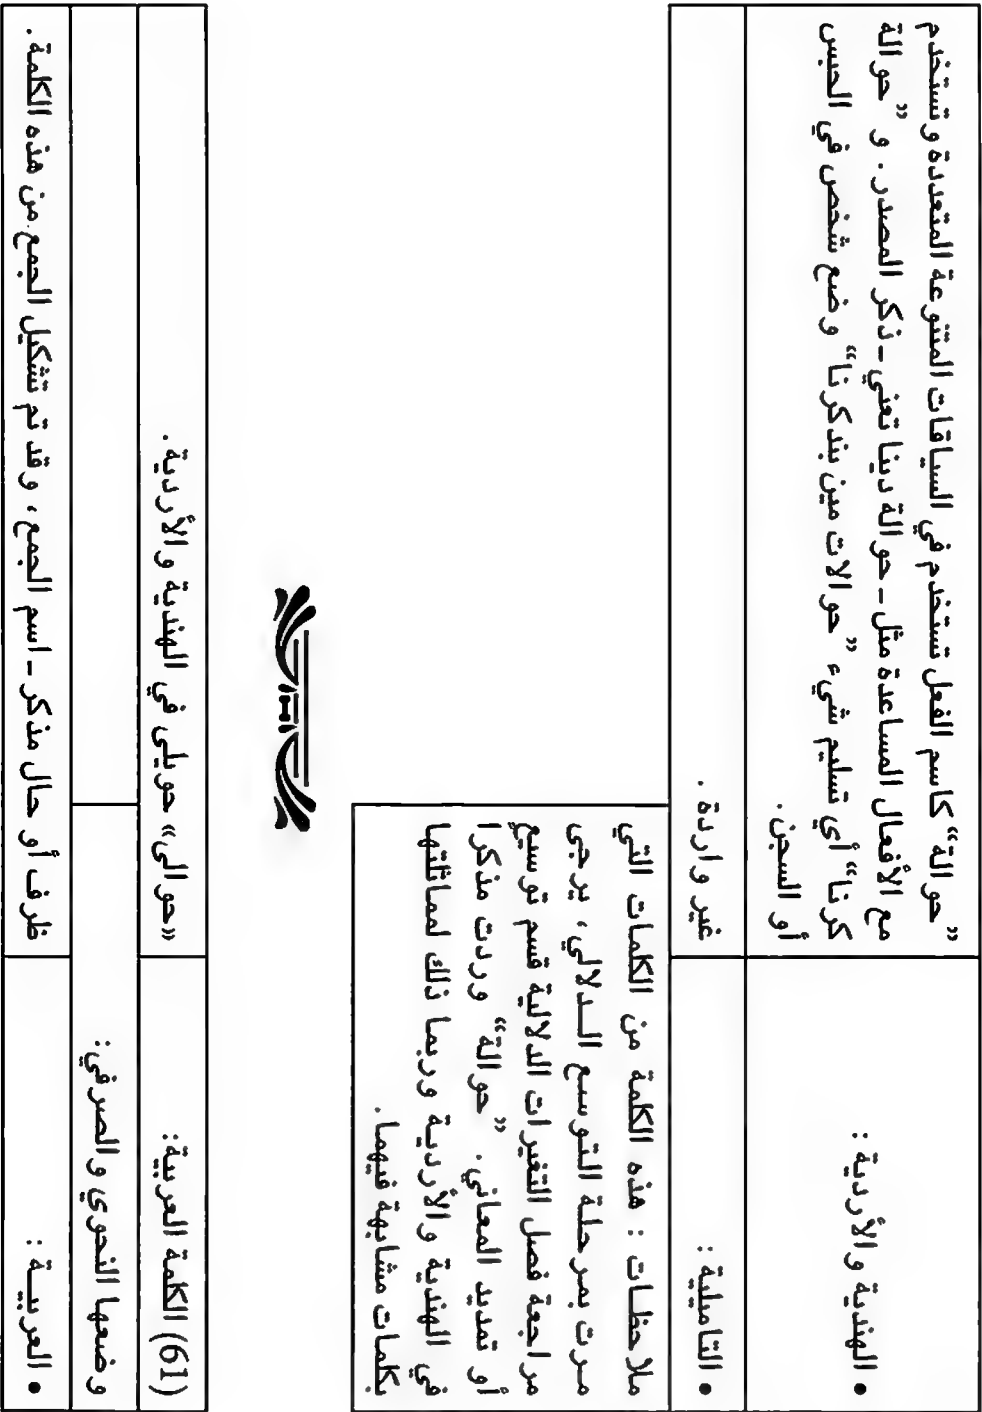 • الهندية والأردية :
”حوالة“ كاسم الفعل تستخدم في السياقات المتنوعة المتعددة وتستخدم
مع الأفعال المساعدة مثل ـ حوالة دينا تعني ـ ذكر المصدر. و ”حوالة
كرنا“ أي تسليم شيء ”حوالات مين بندكرنا“ وضع شخص في الحبس
أو السجن.
• التاميلية :
غير واردة .
ملاحظات : هذه الكلمة من الكلمات التي
مرت بمرحلة التوسع الدلالي، يرجى
مراجعة فصل التغيرات الدلالية قسم توسيع
أو تمديد المعاني. ”حوالة“ وردت مذكرا
في الهندية والأردية وربما ذلك لمماثلتها
بكلمات مشابهة فيهما.
(61) الكلمة العربية:
«حوالى» حويلى في الهندية والأردية.
وضعها النحوي والصرفي:
• العربية :
ظرف أو حال مذكر ـ اسم الجمع، وقد تم تشكيل الجمع من هذه الكلمة.